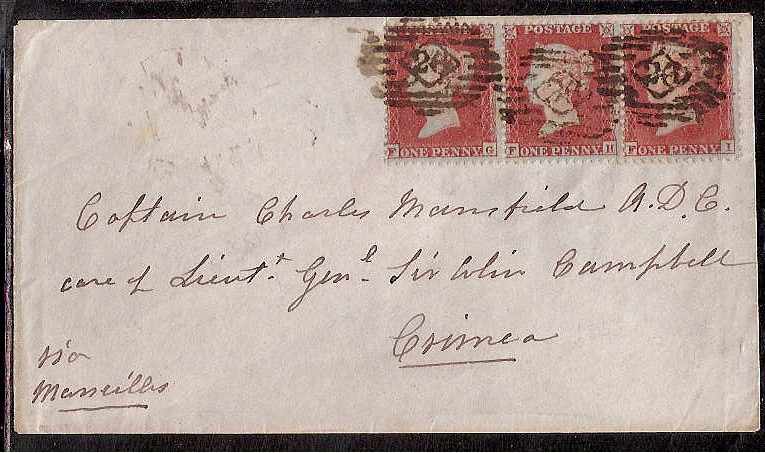 POSTAGE POSTAGE
26 26 26
F ONE PENNY G F ONE PENNY H F ONE PENNY I
Captain Charles Mansfield A.D.C.
care of Lieut.t Gen.l Sir Colin Campbell
Crimea
via
Marseilles